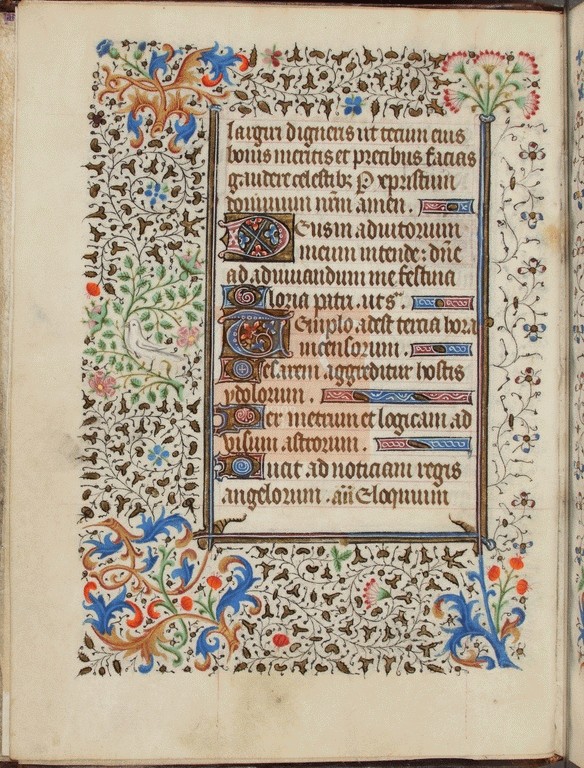 largiri digneris ut tecum eius
bonis meritis et precibus facias
gaudere celestibꝫ P xpristum
dominum nr̄m amen.
Deus in adiutorium
meum intende: dn̄e
ad adiuuandum me festina
Gloria patri. ut sͣ.
Templo adest tercia hora
incensorum.
Cesarem aggreditur hostis
ydolorum.
Per metrum et logicam ad
uisum astrorum.
Ducit ad noticiam regis
angelorum. an̄ Eloquium